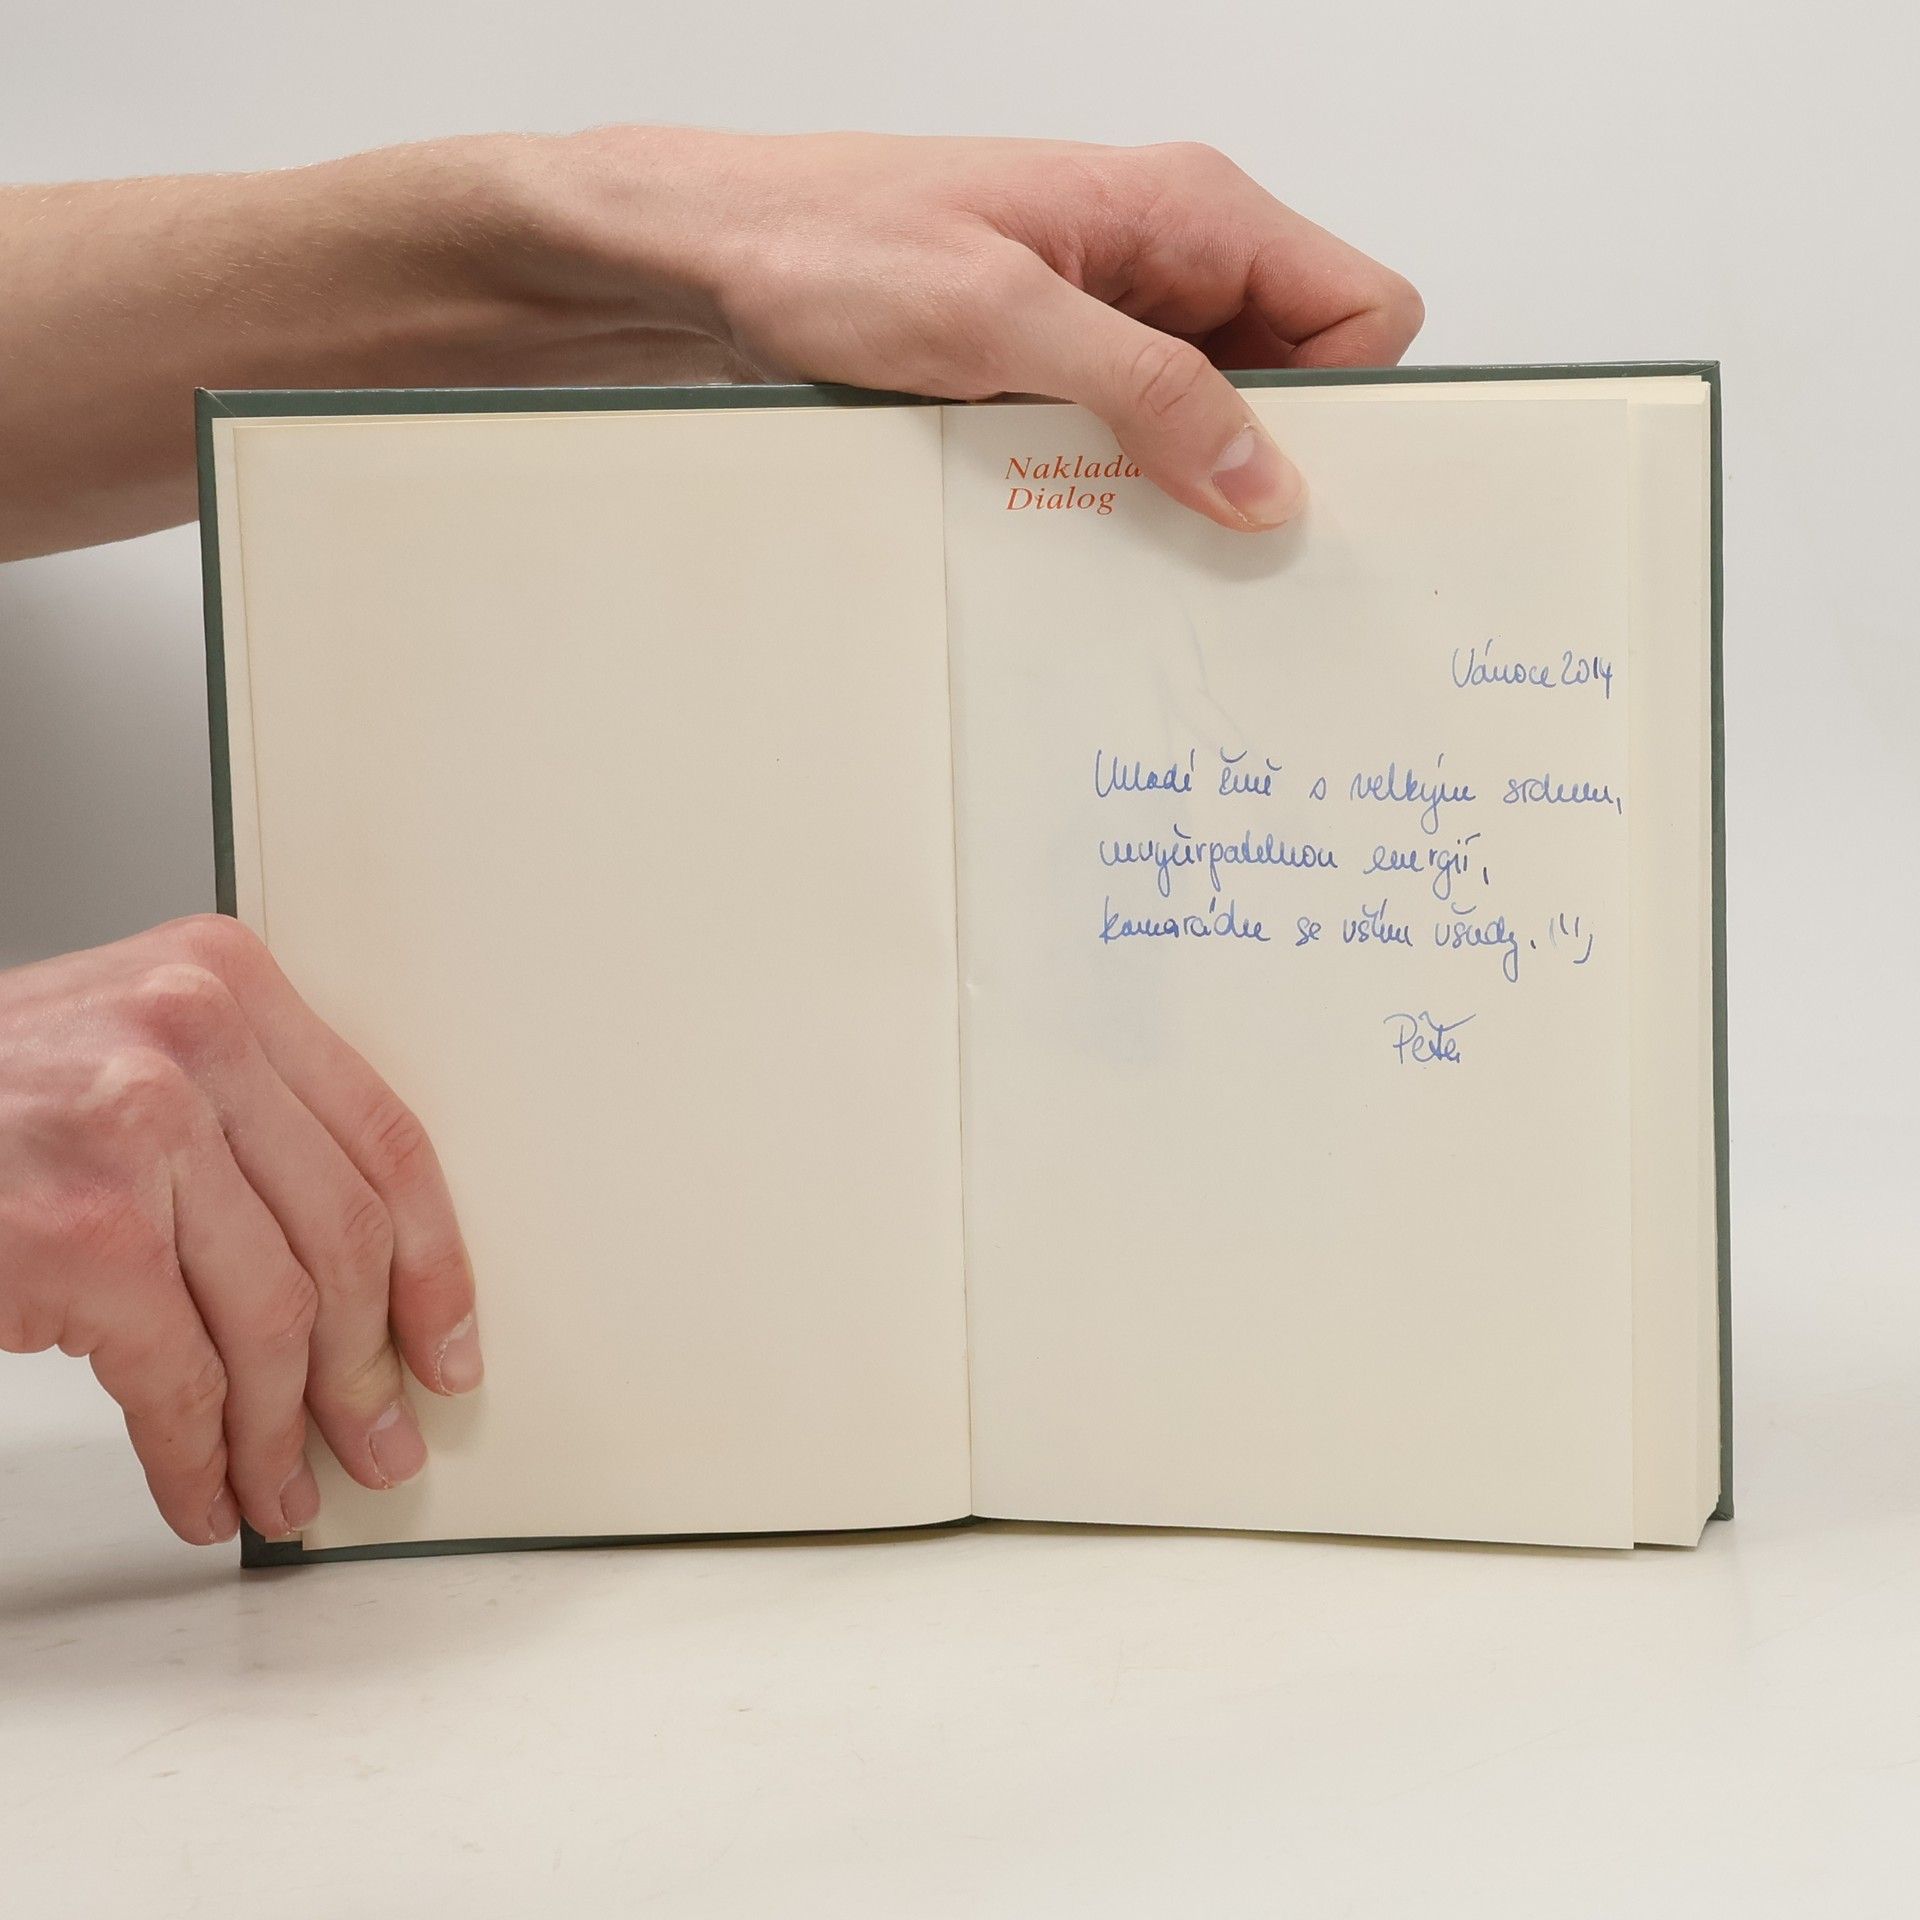 Naklada
Dialog
Vánoce 2014
Mladé ženě s velkým srdcem,
nevyčerpatelnou energií,
kamarádce se vším všudy.
Péťa